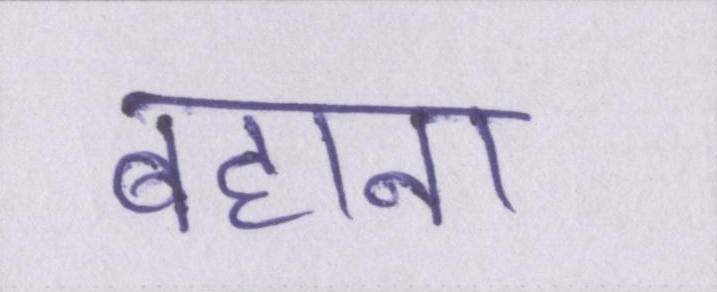 बहाना